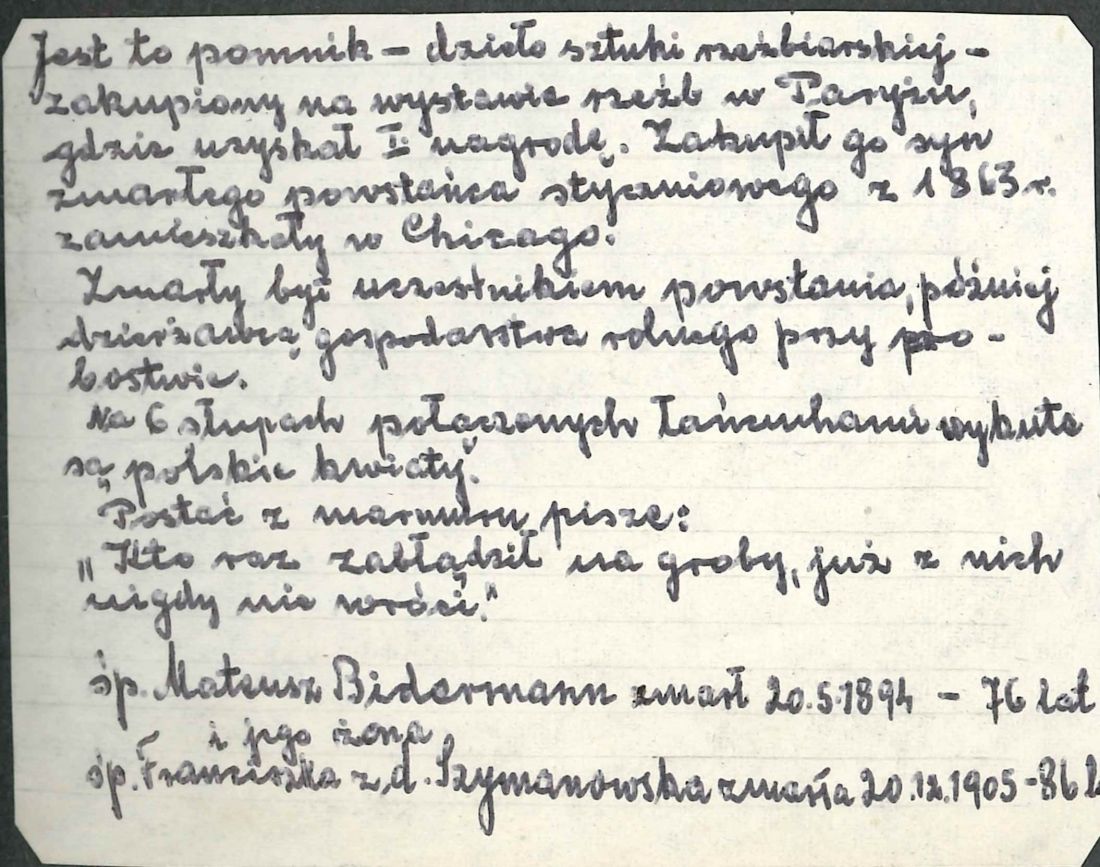 Jest to pomnik – dzieło sztuki rzeźbiarskiej –
zakupiony na wystawie rzeźb w Paryżu,
gdzie uzyskał I nagrodę. Zakupił go syn
zmarłego powstańca styczniowego z 1863 r.
zamieszkały w Chicago.
Zmarły był uczestnikiem powstania, później
dzierżawcą gospodarstwa rolnego przy pro-
bostwie.
Na 6 słupach połączonych łańcuchami wykute
są polskie kwiaty.
Postać z marmuru pisze:
„Kto raz zabłądził na groby, już z nich
nigdy nie wróci."
śp. Mateusz Bidermann zmarł 20.5.1894 – 76 lat
i jego żona
śp. Franciszka z d. Szymanowska zmarła 20.12.1905 - 86 l